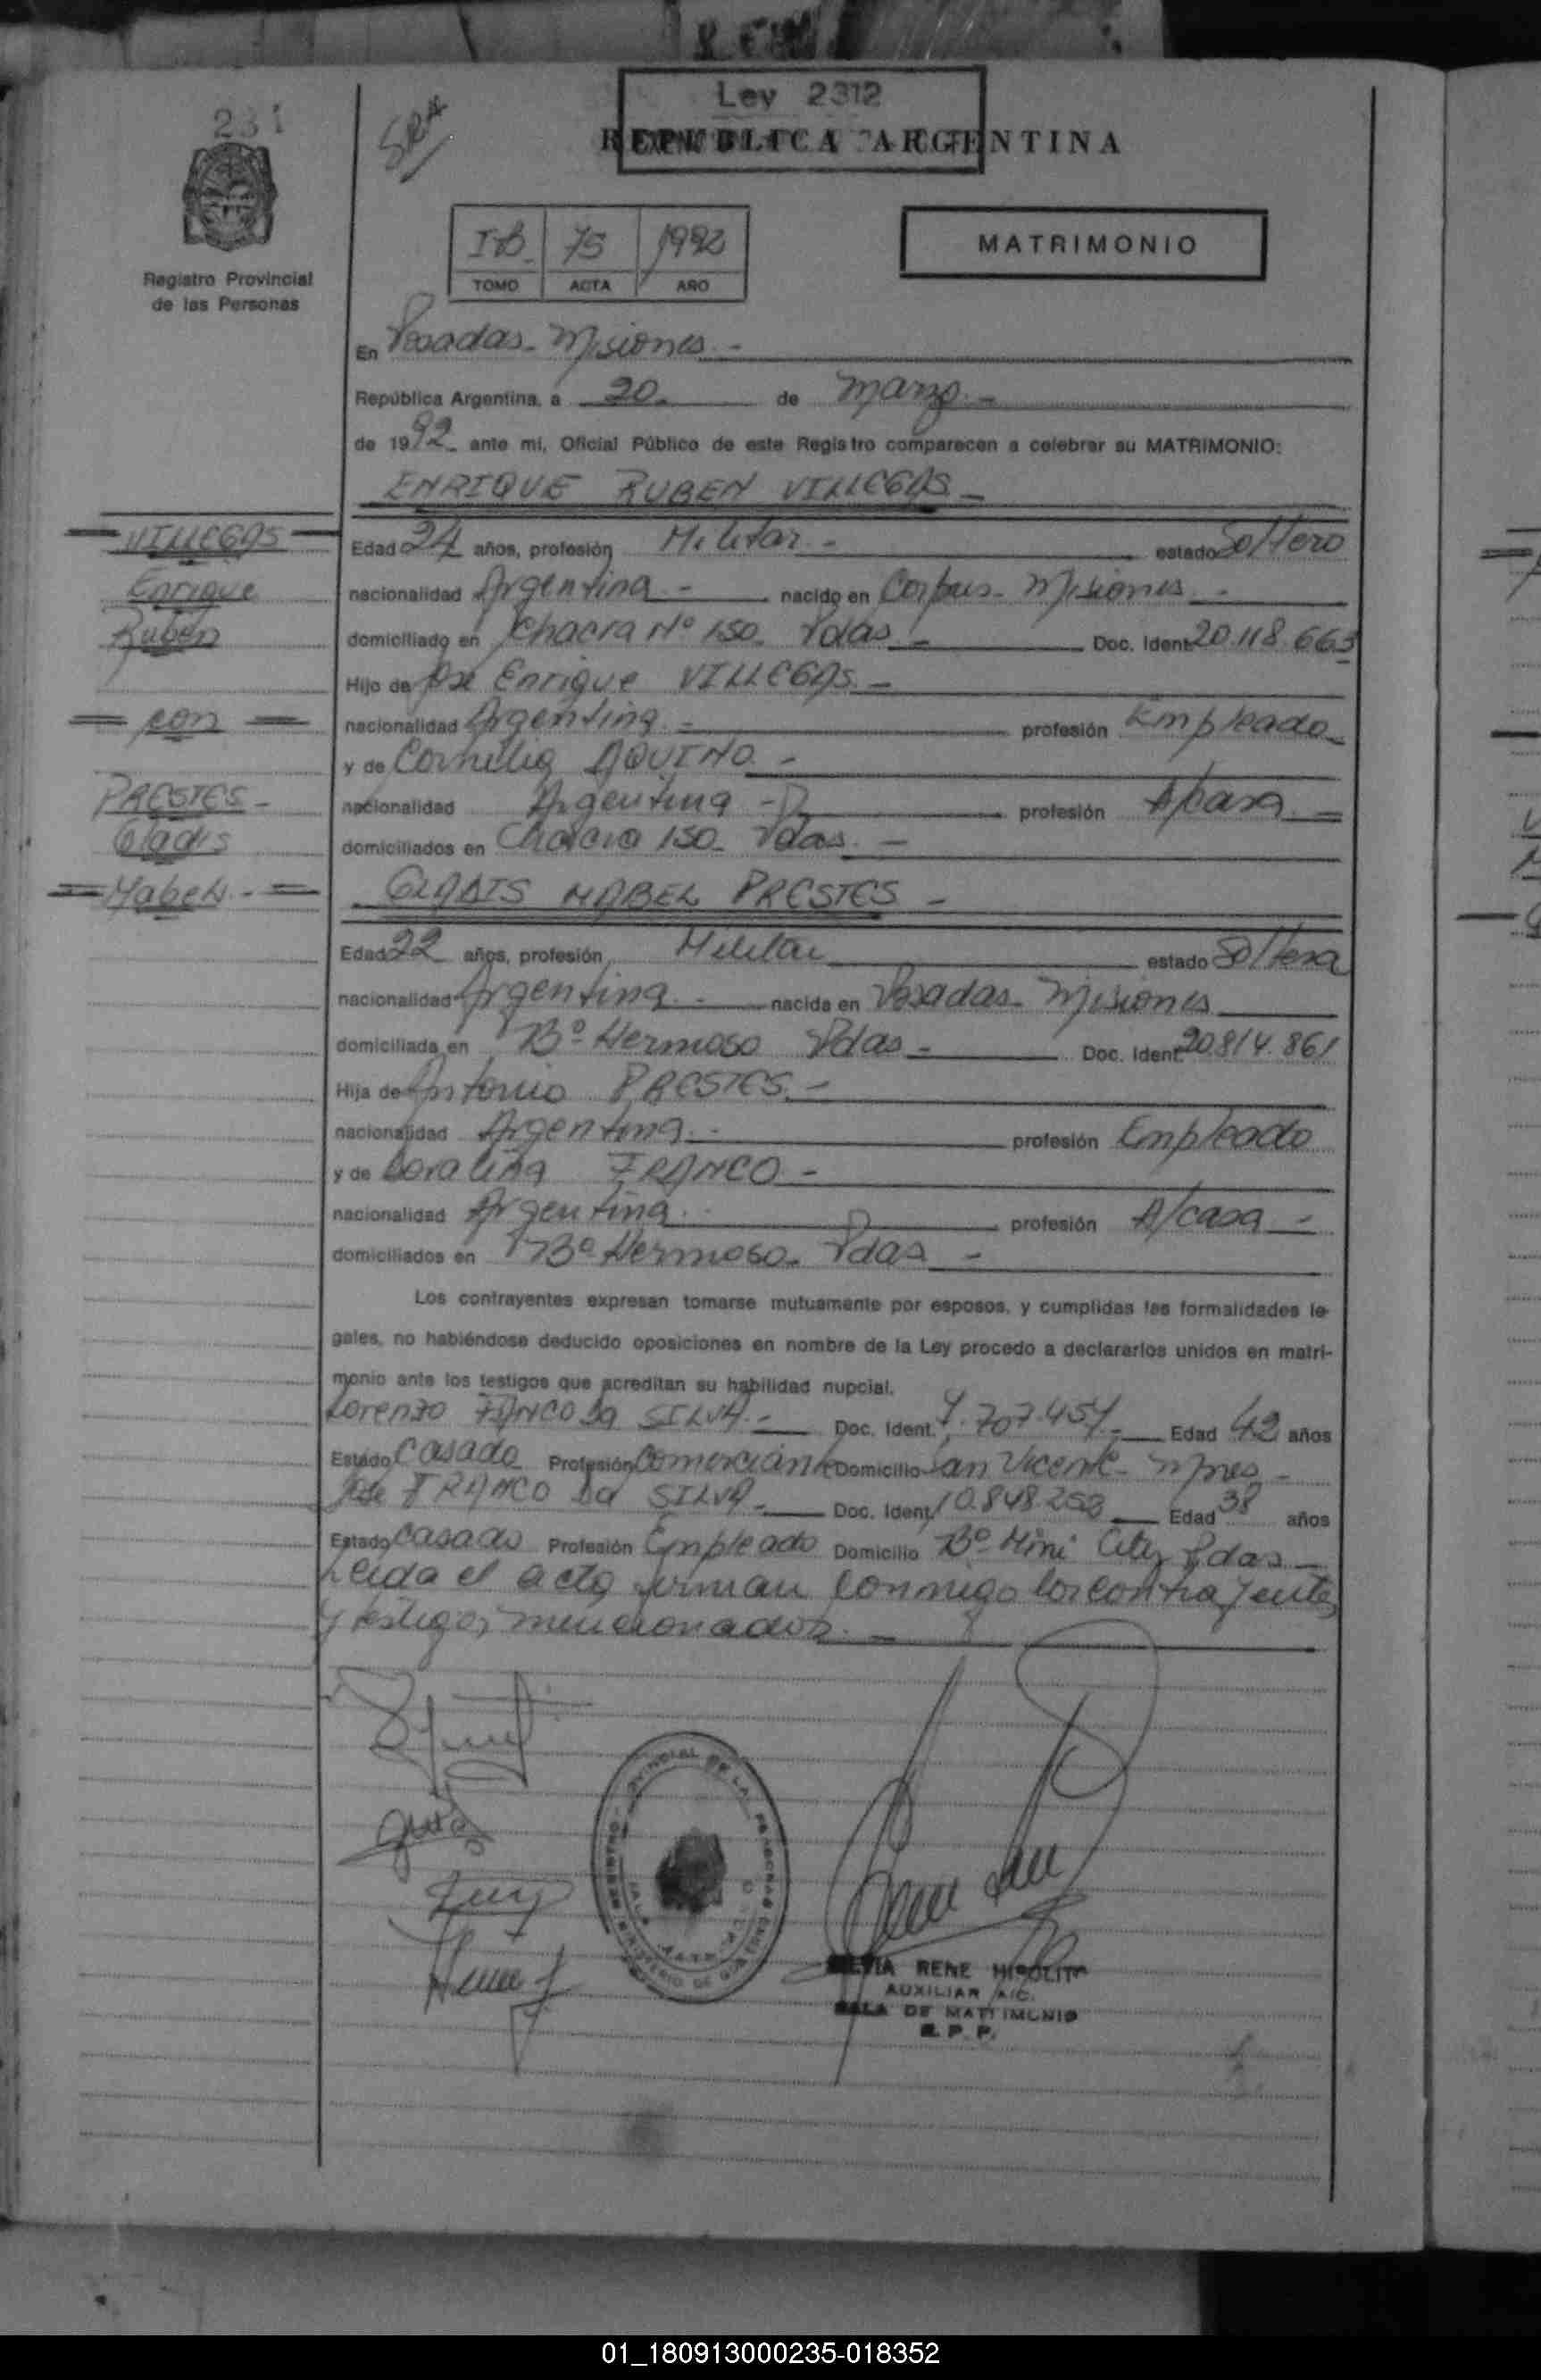 231
SRA
Ley 2312
REPUBLICA ARGENTINA
Registro Provincial
de las Personas
75 1992
TOMO ACTA AÑO
MATRIMONIO
En Posadas - Misiones -
República Argentina, a 20 - de Marzo -
de 1992 ante mi, Oficial Público de este Registro comparecen a celebrar su MATRIMONIO:
ENRIQUE RUBEN VILLEGAS -
Edad 24 años, profesión Militar - estado Soltero
nacionalidad Argentina - nacido en Corpus - Misiones -
domiciliado en Chacra Nº 150 - Pdas - Doc. Ident. 20.118.663
Hijo de José Enrique VILLEGAS -
nacionalidad Argentina - profesión Empleado -
y de Cornelia AQUINO -
nacionalidad Argentina - profesión A/casa -
domiciliados en Chacra 150 - Pdas -
GLADIS MABEL PRESTES -
Edad 22 años, profesión Militar estado Soltera
nacionalidad Argentina - nacida en Posadas - Misiones
domiciliada en Bº Hermoso Pdas - Doc. Ident. 20.814.861
Hija de Antonio PRESTES -
nacionalidad Argentina - profesión Empleado
y de FRANCO -
nacionalidad Argentina - profesión A/casa -
domiciliados en Bº Hermoso - Pdas -
Los contrayentes expresan tomarse mutuamente por esposos, y cumplidas las formalidades le-
gales, no habiéndose deducido oposiciones en nombre de la Ley procedo a declararlos unidos en matri-
monio ante los testigos que acreditan su habilidad nupcial.
Lorenzo Da SILVA - Doc. Ident. Edad 42 años
Estado Casado Profesión Comerciante Domicilio San Vicente - Mnes -
José FRANCO Da SILVA - Doc. Ident. 10.848.258 Edad 38 años
Estado Casado Profesión Empleado Domicilio Bº Mini City Pdas -
Leida el acta firman conmigo los contrayentes
y testigos mencionados -
VILLEGAS
Enrique
Ruben
con
PRESTES -
Gladis
Mabel -
SILVIA RENE HIPOLITO
AUXILIAR A/C.
SALA DE MATRIMONIO
R. P. P.
01_180913000235-018352